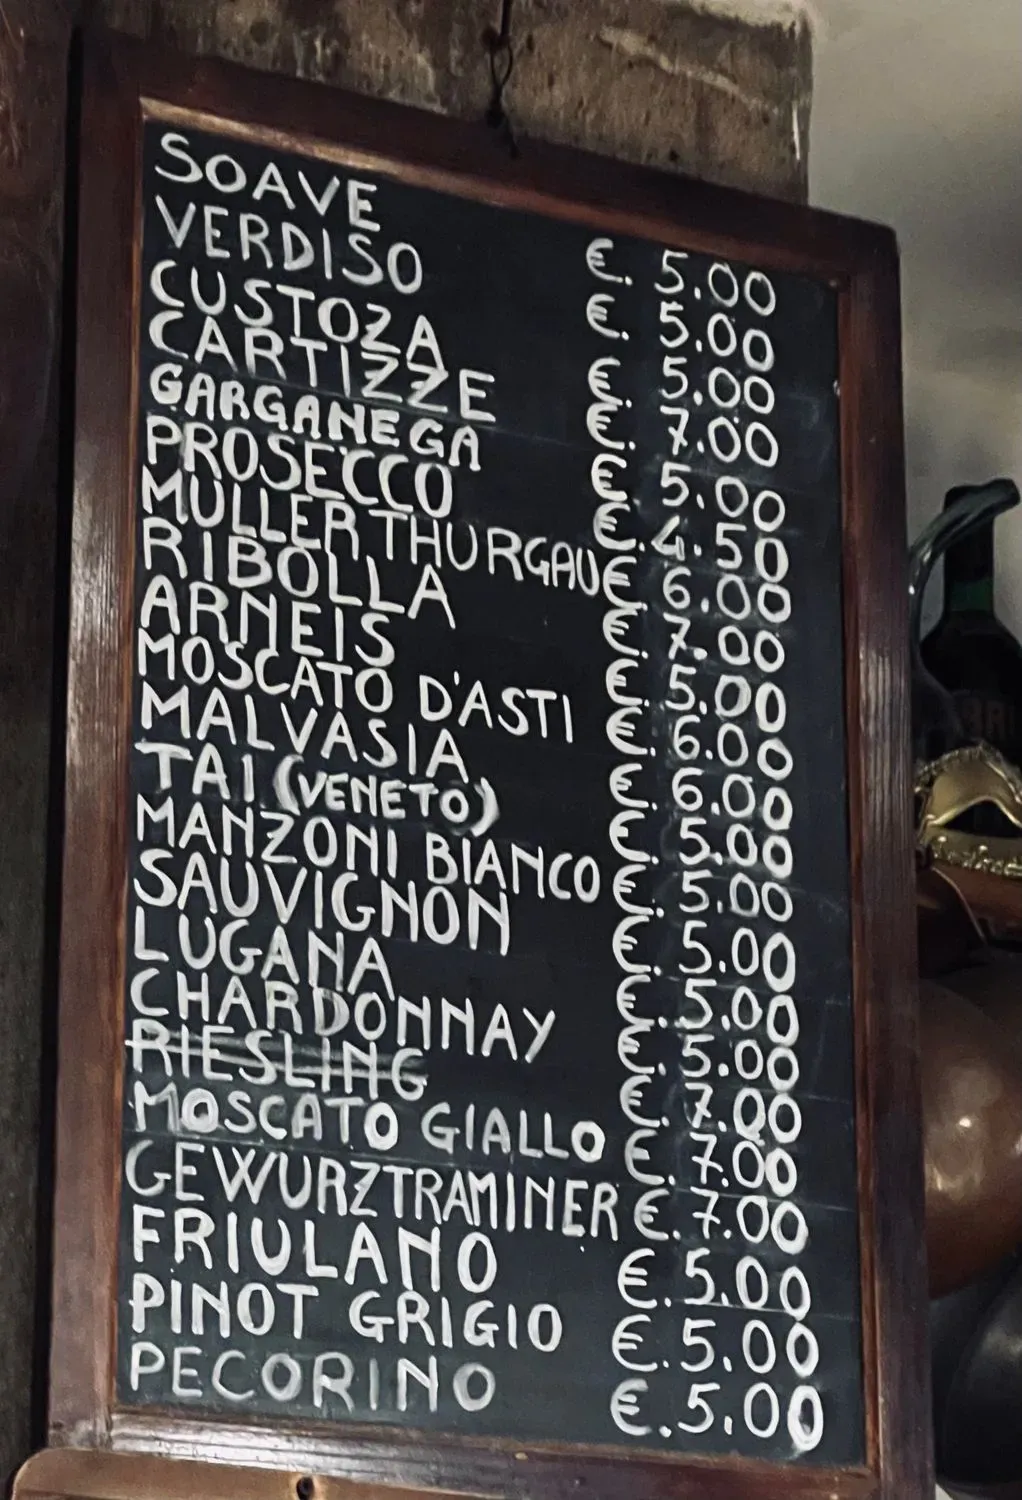 SOAVE €. 5.00
VERDISO €. 5.00
CUSTOZA €. 5.00
CARTIZZE €. 7.00
GARGANEGA €. 5.00
PROSECCO €. 4.50
MULLER THURGAU €. 6.00
RIBOLLA €. 7.00
ARNEIS €. 5.00
MOSCATO D'ASTI €. 6.00
MALVASIA €. 6.00
TAI (VENETO) €. 5.00
MANZONI BIANCO €. 5.00
SAUVIGNON €. 5.00
LUGANA €. 5.00
CHARDONNAY €. 5.00
RIESLING €. 7.00
MOSCATO GIALLO €. 7.00
GEWURZTRAMINER €. 7.00
FRIULANO €. 5.00
PINOT GRIGIO €. 5.00
PECORINO €. 5.00